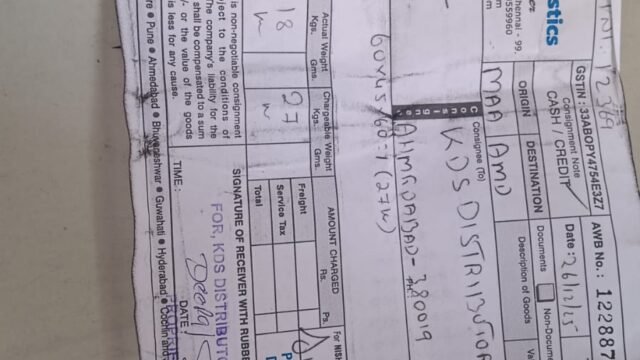 stics
hennai - 99.
559960
12369
GSTIN : 33ABOPY4754E3Z7
Consignment Note
CASH / CREDIT
AWB No.: 122887
Date : 26/12/25
ORIGIN
DESTINATION
Documents
Non-Docum
MAA
AMD
Description of Goods
Consignee (To)
KDS DISTRIBUTOR
AHMEDABAD - 380019
Actual Weight
Kgs.
Gms.
Chargeable Weight
Kgs.
Gms.
AMOUNT CHARGED
Rs.
Ps.
18
27
Freight
Service Tax
Total
is non-negotiable consignment
ject to the conditions of
The company's liability for the
shall be compensated to a sum
/- or the value of the goods
is less for any cause.
SIGNATURE OF RECEIVER WITH RUBBE
FOR, KDS DISTRIBUTO
TIME :
DATE
re • Pune • Ahmedabad • Bhuvaneshwar • Guwahati • Hyderabad • Cochin and